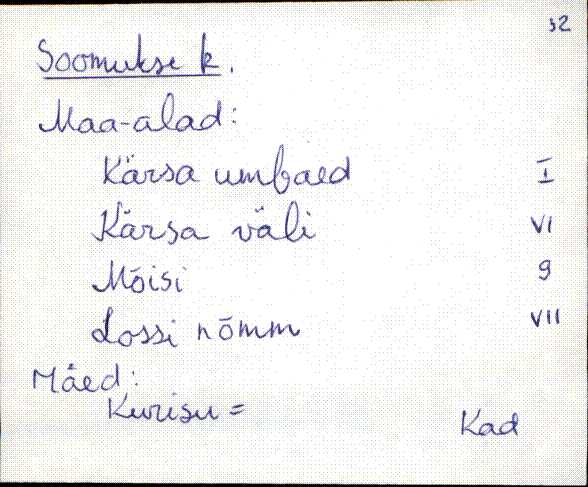 32
Soomukse k.
Maa-alad:
Kärsa umbaed I
Kärsa väli VI
Mõisi 9
Lossi nõmm VII
Mäed:
Kurisu =
Kad